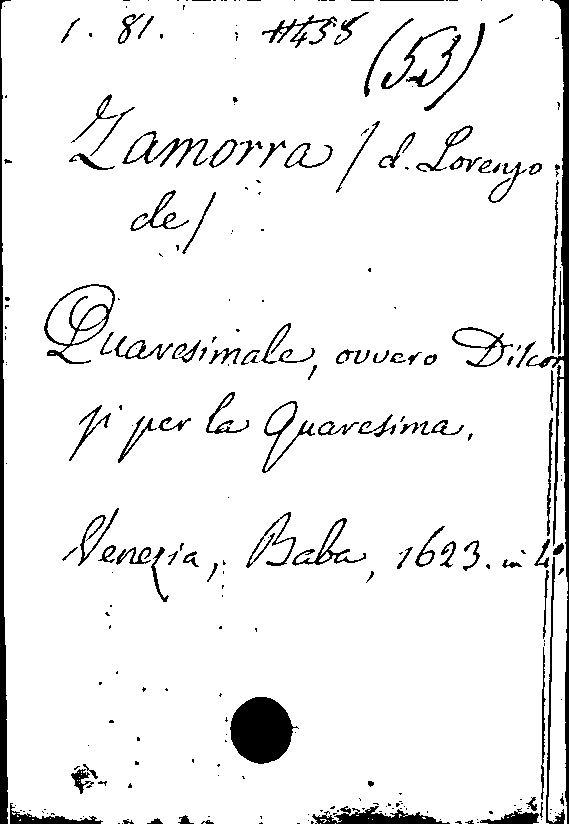 1. 81. #458 (53)
Zamorra / d. Lorenzo
de /
Quaresimale, ovvero Discor
si per la Quaresima.
Venezia, Baba, 1623. in 4º.